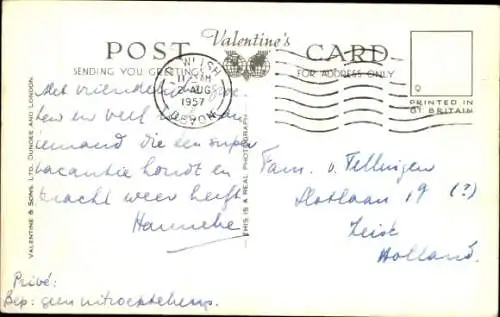 POST
Valentine's
CARD
SENDING YOU GREETINGS
FOR ADDRESS ONLY
DAWLISH
2 AUG
1957
DEVON
PRINTED IN
GT. BRITAIN
VALENTINE & SONS, LTD., DUNDEE AND LONDON.
THIS IS A REAL PHOTOGRAPH
Met vriendelijke
en veel
iemand die een super
vacantie houdt en
pracht weer heeft
Hanneke
Fam. v. Tellingen
Slotlaan 19 (?)
Zeist
Holland.
Privé:
Bep: geen